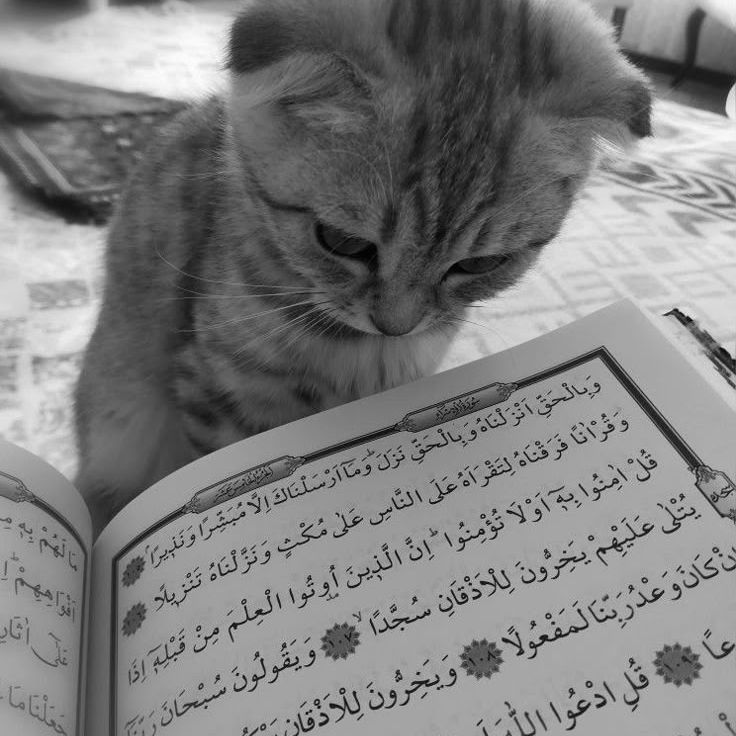 سُورَةُ الْاِسْرَاءِ
اَلْجُزْءُ الْخَامِسَ عَشَرَ
وَبِالْحَقِّ اَنْزَلْنَاهُ وَبِالْحَقِّ نَزَلَۜ وَمَٓا اَرْسَلْنَاكَ اِلَّا مُبَشِّرًا وَنَذ۪يرًاۢ ﴿١٠٥﴾
وَقُرْاٰنًا فَرَقْنَاهُ لِتَقْرَاَهُ عَلَى النَّاسِ عَلٰى مُكْثٍ وَنَزَّلْنَاهُ تَنْز۪يلًا ﴿١٠٦﴾
قُلْ اٰمِنُوا بِه۪ٓ اَوْ لَا تُؤْمِنُواۜ اِنَّ الَّذ۪ينَ اُو۫تُوا الْعِلْمَ مِنْ قَبْلِه۪ٓ اِذَا
يُتْلٰى عَلَيْهِمْ يَخِرُّونَ لِلْاَذْقَانِ سُجَّدًاۙ ﴿١٠٧﴾ وَيَقُولُونَ سُبْحَانَ رَبِّنَٓا
اِنْ كَانَ وَعْدُ رَبِّنَا لَمَفْعُولًا ﴿١٠٨﴾ وَيَخِرُّونَ لِلْاَذْقَانِ
﴿١٠٩﴾ قُلِ ادْعُوا اللّٰهَ
سجدة
مَا لَهُمْ بِه۪ مِنْ
اَفْوَاهِهِمْۜ
عَلٰٓى اٰثَارِ
جَعَلْنَا مَا